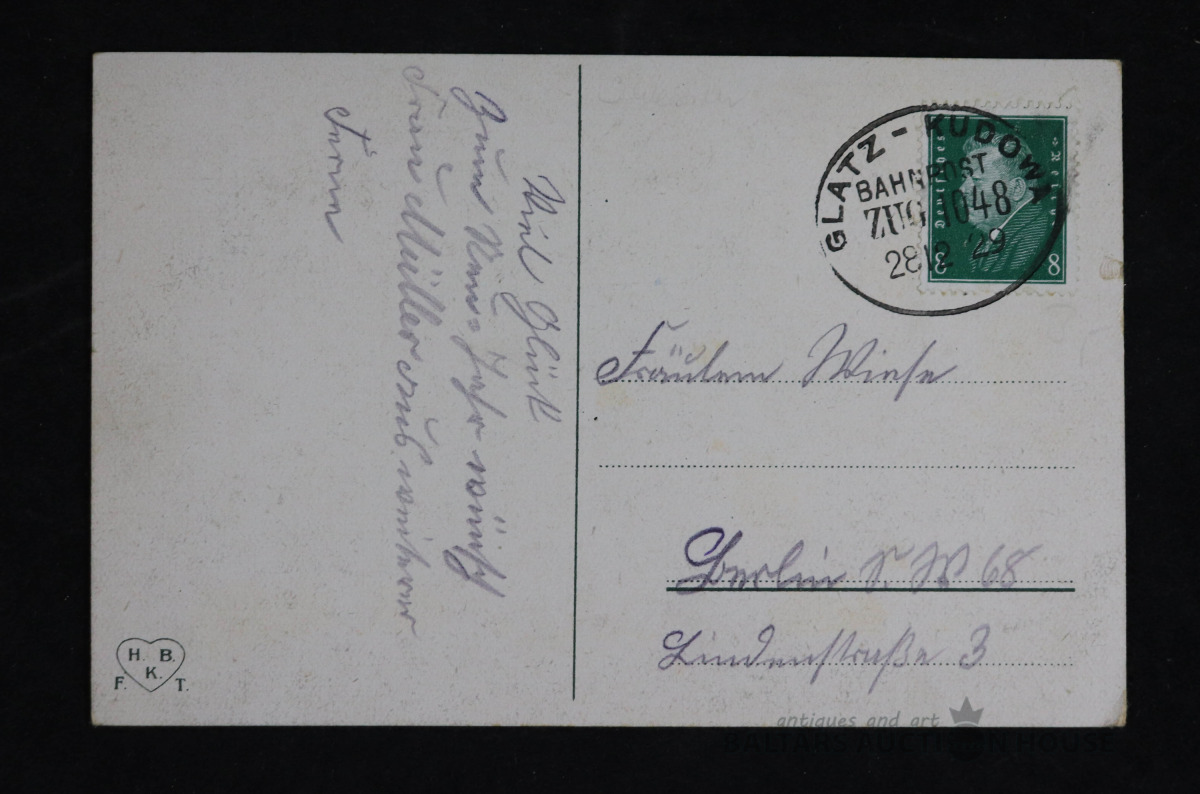 Viel Glück
Zum Neu-Jahr wünscht
Frau Müller aus weiterer
Ferne
GLATZ - KUDOWA
BAHNPOST
ZUG 1048
28 12 29
Deutsches Reich
8 8
Fräulein Wiese
Berlin S. W 68
Lindenstraße 3
H. B.
K.
F. T.
antiques and art
BALTARS AUCTION HOUSE